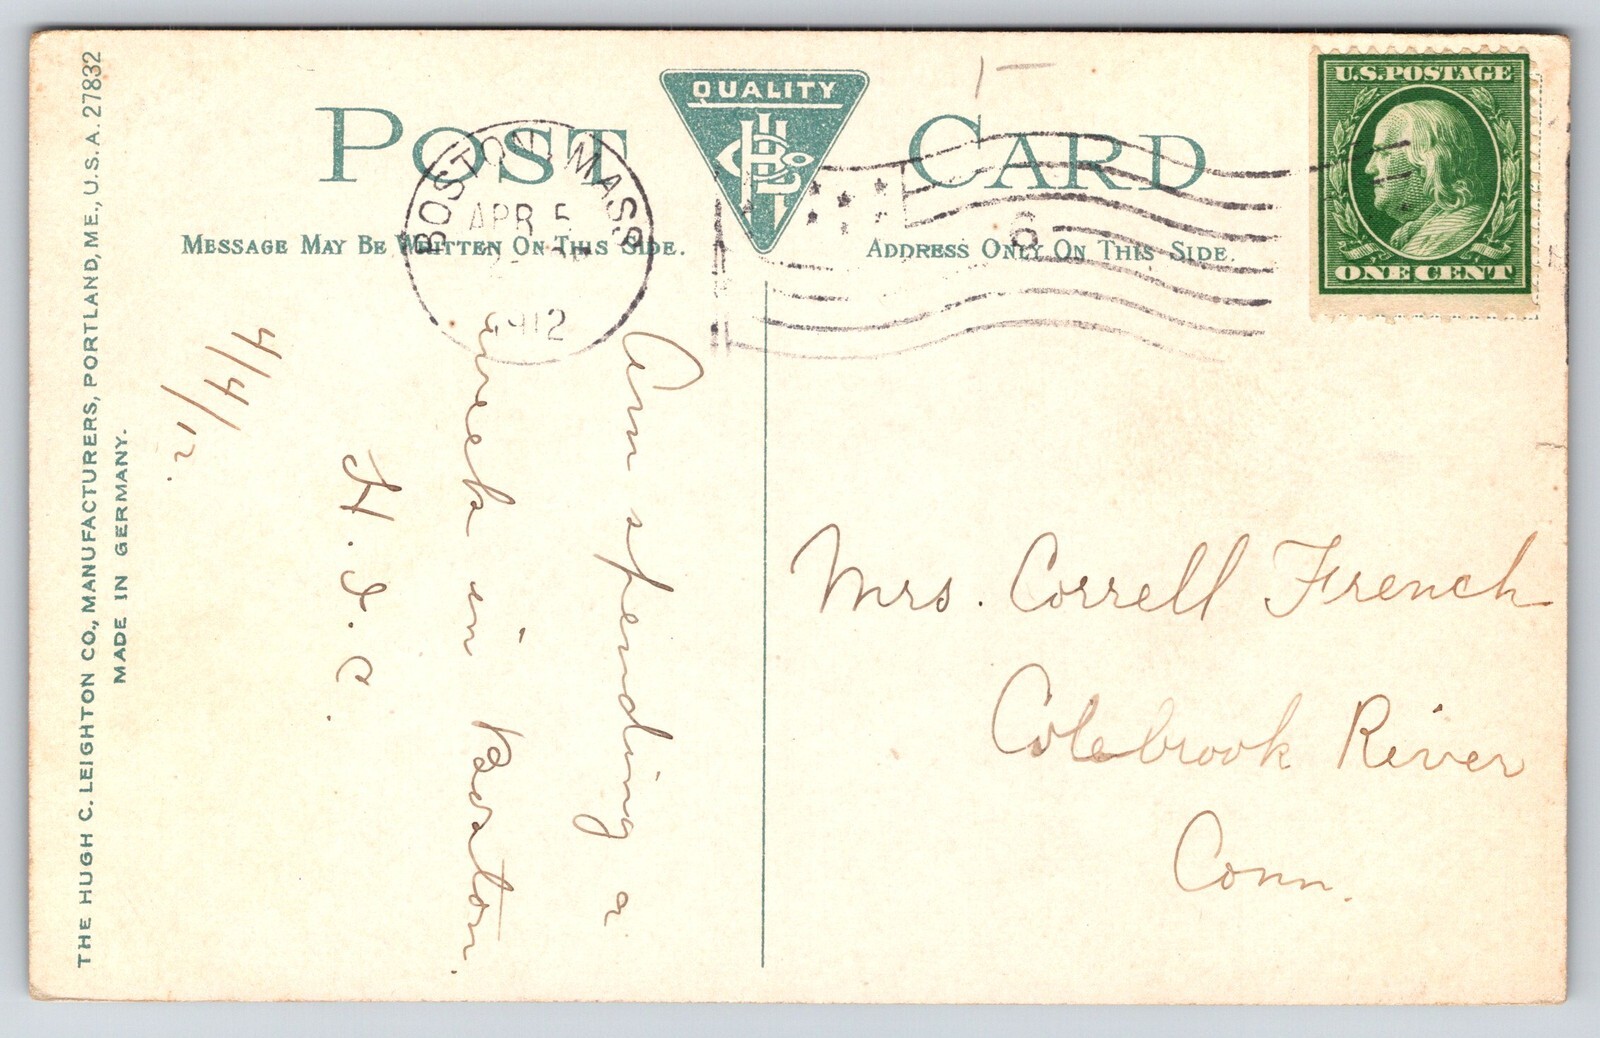 THE HUGH C. LEIGHTON CO., MANUFACTURERS, PORTLAND, ME., U.S.A. 27832
MADE IN GERMANY.
POST CARD
QUALITY
HCL Co
MESSAGE MAY BE WRITTEN ON THIS SIDE.
ADDRESS ONLY ON THIS SIDE.
BOSTON, MASS
APR 5
1912
6
U.S. POSTAGE
ONE CENT
Am spending a
week in Boston.
H. I. C.
4/4/12.
Mrs. Correll French
Colebrook River
Conn.